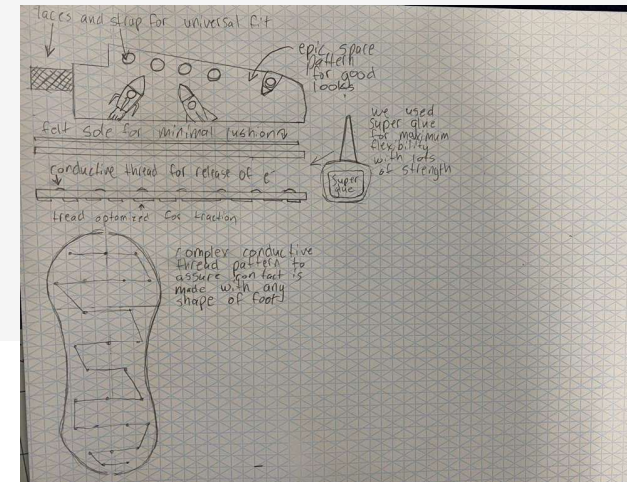 laces and strap for universal fit
epic space
pattern
for good
looks
we used
super glue
for maximum
flexibility
with lots
of strength
felt sole for minimal cushion
super
glue
conductive thread for release of e⁻
tread optomized for traction
complex conductive
thread pattern to
assure contact is
made with any
shape of foot